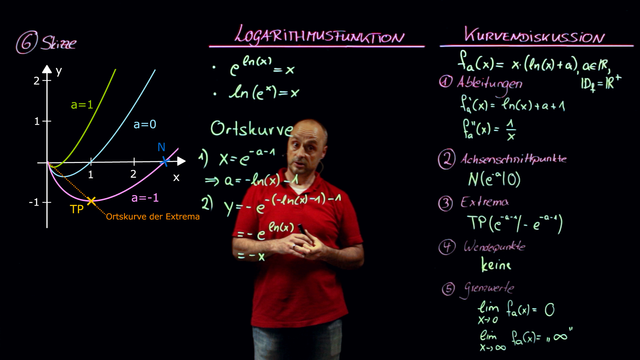 ⑥ Skizze
y
2
1
-1
a=1
a=0
N
1
2
x
TP
a=-1
Ortskurve der Extrema
LOGARITHMUSFUNKTION
• e^ln(x) = x
• ln(e^x) = x
Ortskurve
1) x = e^-a-1
⇒ a = -ln(x)-1
2) y = -e^-(-ln(x)-1)-1
= -e^ln(x)
= -x
KURVENDISKUSSION
f_a(x) = x·(ln(x)+a), a∈ℝ,
① Ableitungen
D_f = ℝ⁺
f_a'(x) = ln(x)+a+1
f_a''(x) = 1/x
② Achsenschnittpunkte
N(e^-a|0)
③ Extrema
TP(e^-a-1|-e^-a-1)
④ Wendepunkte
keine
⑤ Grenzwerte
lim x→0 f_a(x) = 0
lim x→∞ f_a(x) = „∞"